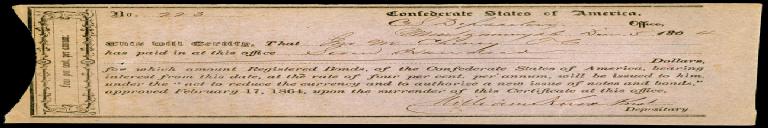 No. 223 Confederate States of America,
Office,
Montgomery 186 4
This will Certify, That
has paid in at this office
Dollars,
for which amount Registered Bonds, of the Confederate States of America, bearing
interest from this date, at the rate of four per cent. per annum, will be issued to him
under the "act to reduce the currency and to authorize a new issue of notes and bonds,"
approved February 17, 1864, upon the surrender of this Certificate at this office.
Depositary
four per cent. per annum.